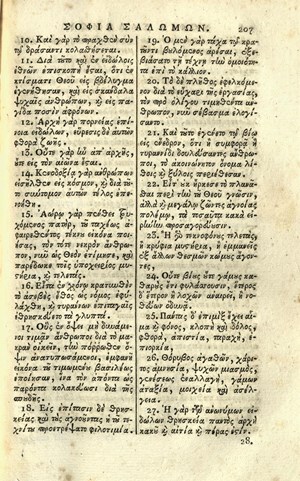 ΣΟΦΙΑ ΣΑΛΩΜΩΝ.
207
10. Καὶ γὰρ τὸ πραχθὲν σὺν
τῷ δράσαντι κολασθήσεται.
11. Διὰ τοῦτο καὶ ἐν εἰδώλοις
ἐθνῶν ἐπισκοπὴ ἔσται, ὅτι ἐν
κτίσματι Θεοῦ εἰς βδέλυγμα
ἐγενήθησαν, καὶ εἰς σκάνδαλα
ψυχαῖς ἀνθρώπων, καὶ εἰς παγίδα
ποσὶν ἀφρόνων.
12. Ἀρχὴ γὰρ πορνείας ἐπίνοια
εἰδώλων, εὕρεσις δὲ αὐτῶν
φθορὰ ζωῆς.
13. Οὔτε γὰρ ἦν ἀπ' ἀρχῆς,
οὔτε εἰς τὸν αἰῶνα ἔσται.
14. Κενοδοξίᾳ γὰρ ἀνθρώπων
εἰσῆλθεν εἰς κόσμον, καὶ διὰ τοῦτο
σύντομον αὐτῶν τέλος ἐπενοήθη.
15. Ἀώρῳ γὰρ πένθει τρυχόμενος
πατὴρ, τοῦ ταχέως
ἀφαιρεθέντος τέκνου εἰκόνα ποιήσας,
τὸν τότε νεκρὸν ἄνθρωπον,
νῦν ὡς Θεὸν ἐτίμησε, καὶ
παρέδωκε τοῖς ὑποχειρίοις μυστήρια,
καὶ τελετάς.
16. Εἶτα ἐν χρόνῳ κρατυνθὲν
τὸ ἀσεβὲς ἔθος ὡς νόμος ἐφυλάχθη,
καὶ τυράννων ἐπιταγαῖς
ἐθρησκεύετο τὰ γλυπτά.
17. Οὓς ἐν ὄψει μὴ δυνάμενοι
τιμᾶν ἄνθρωποι διὰ τὸ μακρὰν
οἰκεῖν, τὴν πόῤῥωθεν ὄψιν
ἀνατυπωσάμενοι, ἐμφανῆ
εἰκόνα τοῦ τιμωμένου βασιλέως
ἐποίησαν, ἵνα τὸν ἀπόντα ὡς
παρόντα κολακεύωσι διὰ τῆς
σπουδῆς.
18. Εἰς ἐπίτασιν δὲ θρησκείας
καὶ τοὺς ἀγνοοῦντας ἡ τοῦ τεχνίτου
προετρέψατο φιλοτιμία.
19. Ὁ μὲν γὰρ τάχα τῷ κρατοῦντι
βουλόμενος ἀρέσαι, ἐξεβιάσατο
τῇ τέχνῃ τὴν ὁμοιότητα
ἐπὶ τὸ κάλλιον.
20. Τὸ δὲ πλῆθος ἐφελκόμενον
διὰ τὸ εὔχαρι τῆς ἐργασίας,
τὸν πρὸ ὀλίγου τιμηθέντα ἄνθρωπον,
νῦν σέβασμα ἐλογίσαντο.
21. Καὶ τοῦτο ἐγένετο τῷ βίῳ
εἰς ἔνεδρον, ὅτι ἢ συμφορᾷ ἢ
τυραννίδι δουλεύσαντες ἄνθρωποι,
τὸ ἀκοινώνητον ὄνομα λίθοις
καὶ ξύλοις περιέθεσαν.
22. Εἶτ' οὐκ ἤρκεσε τὸ πλανᾶσθαι
περὶ τὴν τοῦ Θεοῦ γνῶσιν,
ἀλλὰ καὶ μεγάλῳ ζῶντες ἀγνοίας
πολέμῳ, τὰ τοσαῦτα κακὰ εἰρήνην
προσαγορεύουσιν.
23. Ἢ γὰρ τεκνοφόνους τελετὰς,
ἢ κρύφια μυστήρια, ἢ ἐμμανεῖς
ἐξ ἄλλων θεσμῶν κώμους ἄγοντες,
24. Οὔτε βίους οὔτε γάμους καθαροὺς
ἔτι φυλάσσουσιν, ἕτερος
δ' ἕτερον ἢ λοχῶν ἀναιρεῖ, ἢ νοθεύων
ὀδυνᾷ.
25. Πάντας δ' ἐπιμὶξ ἔχει αἷμα
καὶ φόνος, κλοπὴ καὶ δόλος,
φθορὰ, ἀπιστία, ταραχὴ, ἐπιορκία,
26. Θόρυβος ἀγαθῶν, χάριτος
ἀμνησία, ψυχῶν μιασμὸς,
γενέσεως ἐναλλαγὴ, γάμων
ἀταξία, μοιχεία καὶ ἀσέλγεια.
27. Ἡ γὰρ τῶν ἀνωνύμων εἰδώλων
θρησκεία παντὸς ἀρχὴ
κακοῦ καὶ αἰτία καὶ πέρας ἐστίν.
28.